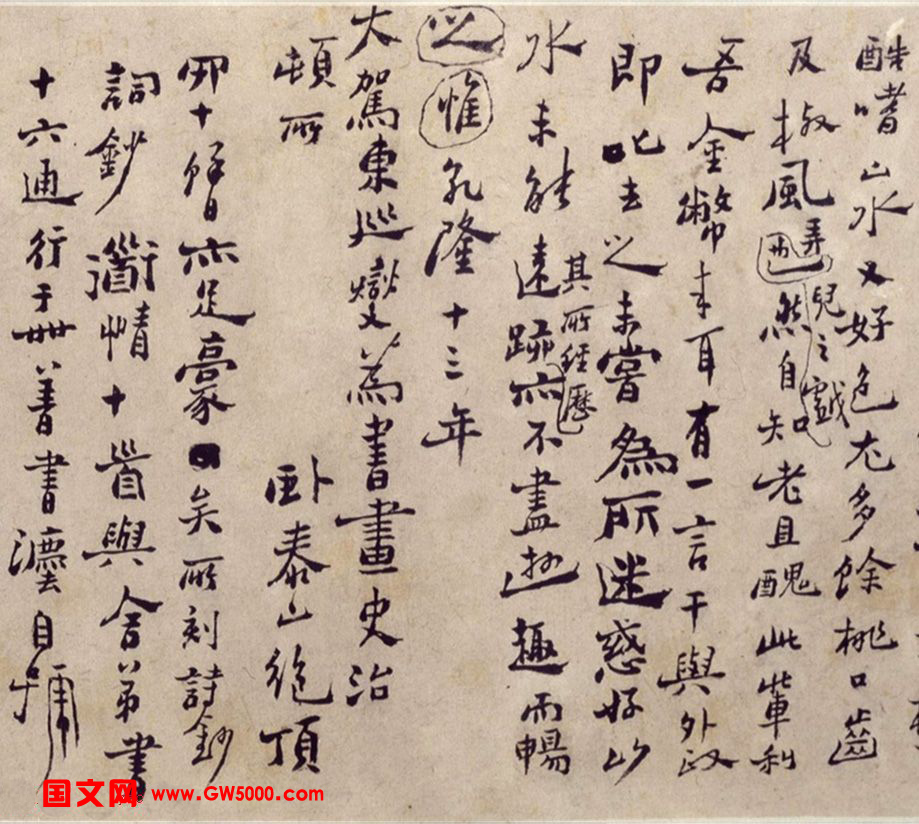 酷嗜山水又好色尤多餘桃口齒
及椒風弄兒之戲然自知老且醜此輩利
吾金幣来耳有一言干與外政
即叱去之未嘗為所迷惑好山
水未能遠跡其所經歷亦不盡遊趣而暢
之惟乾隆十三年
大駕東巡燮為書畫史治
頓所 卧泰山絶頂
四十餘日亦足豪矣所刻詩鈔
詞鈔 衜情十首與舍弟書
十六通行于世善書灋自號
国文网 www.GW5000.com